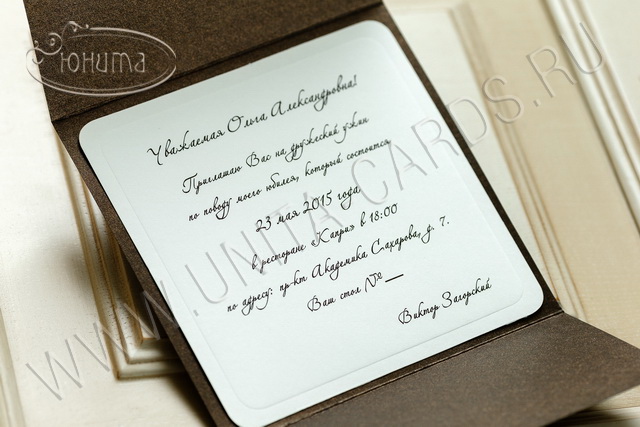 Юнита
Уважаемая Ольга Александровна!
Приглашаю Вас на дружеский ужин
по поводу моего юбилея, который состоится
23 мая 2015 года
в ресторане «Каприз» в 18:00
по адресу: пр-кт Академика Сахарова, д. 7.
Ваш стол № __
Виктор Загорский
WWW.UNITA-CARDS.RU